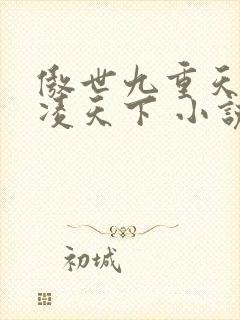 傲世九重天
凌天下 小說
初城